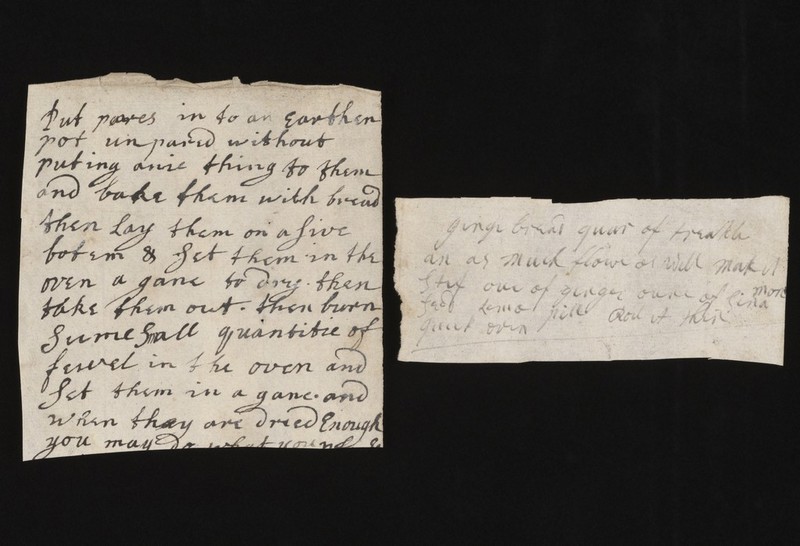 Put pares in to an Earthen
pot unpared without
puting anie thing to them
and bake them with bread
then Lay them on a sive
botem & set them in the
oven a gane to dry. then
take them out. then burn
sume small quantitie of
fewel in the oven and
set them in a gane. and
when thay are dried Enough
you may Do what you
ginge bread quar of treakle
an as much flowe as will mak it
stif ounc of ginger ounc of
more
sed lemo pill Rou it thin
quick oven